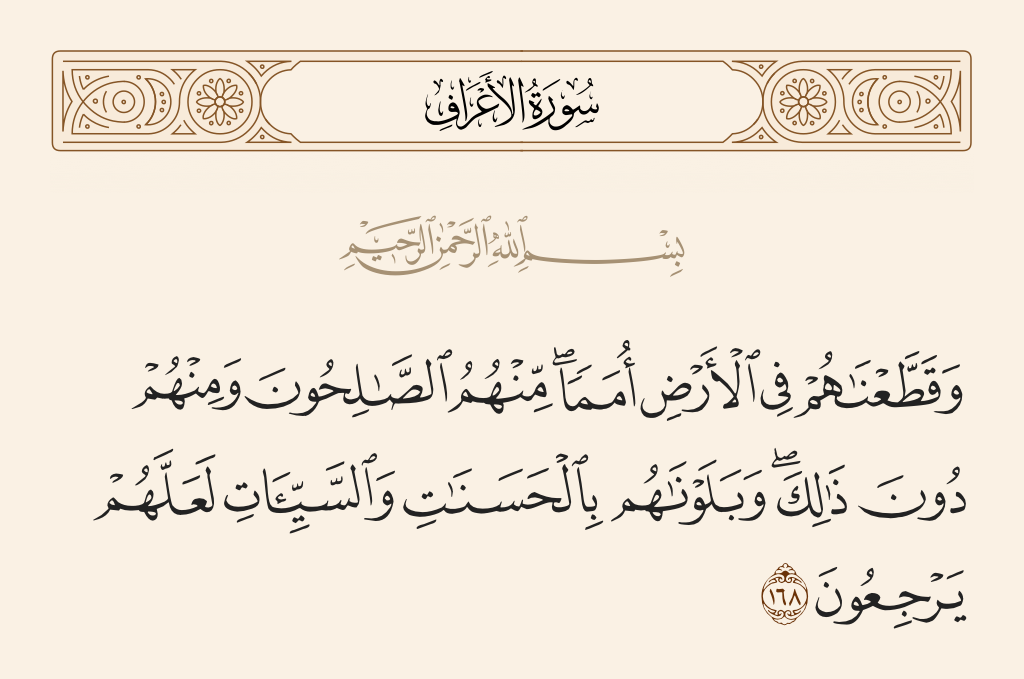 سُورَةُ الأَعْرَافِ
بِسْمِ ٱللَّهِ ٱلرَّحْمَٰنِ ٱلرَّحِيمِ
وَقَطَّعْنَٰهُمْ فِى ٱلْأَرْضِ أُمَمًا ۖ مِّنْهُمُ ٱلصَّٰلِحُونَ وَمِنْهُمْ
دُونَ ذَٰلِكَ ۖ وَبَلَوْنَٰهُم بِٱلْحَسَنَٰتِ وَٱلسَّيِّـَٔاتِ لَعَلَّهُمْ
يَرْجِعُونَ ١٦٨